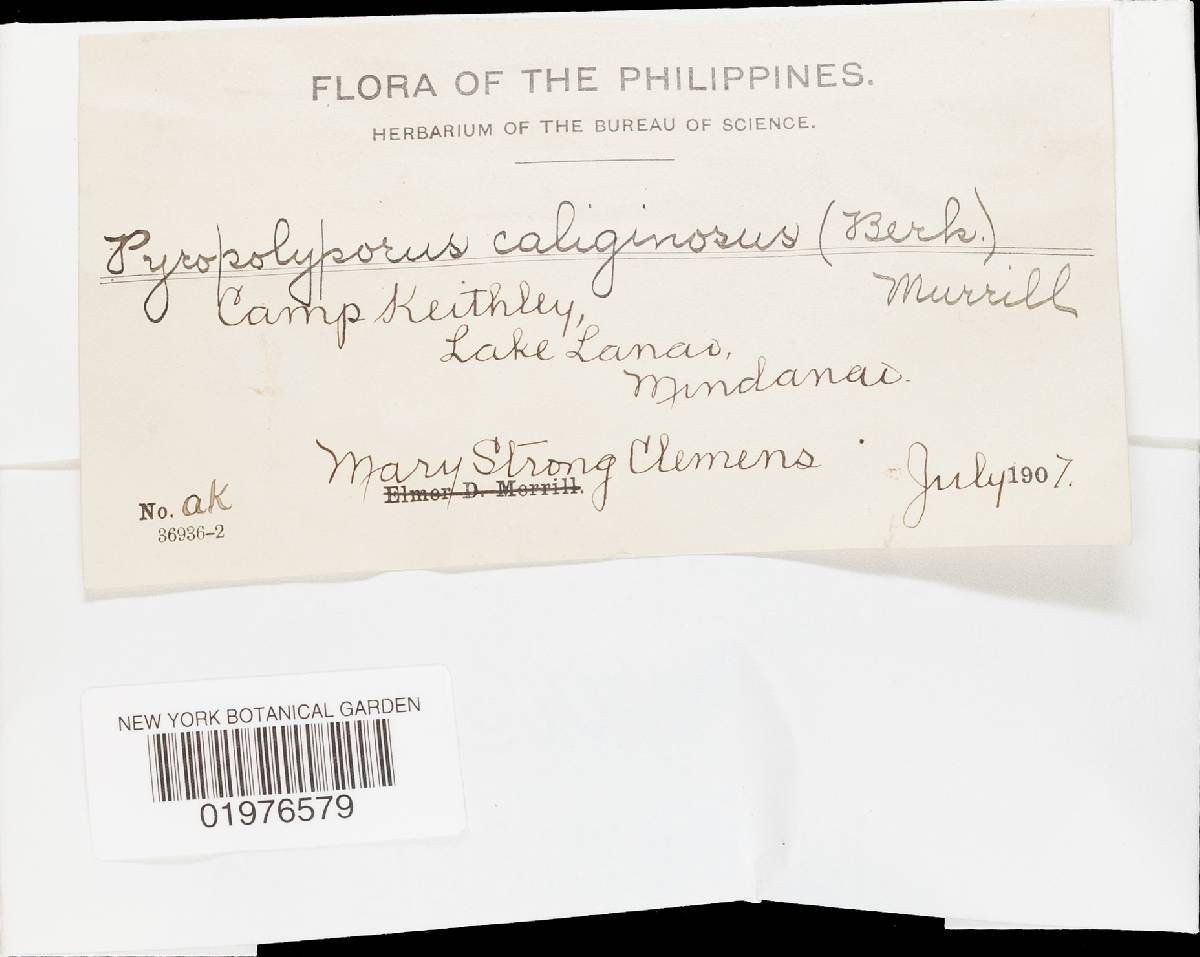 FLORA OF THE PHILIPPINES.
HERBARIUM OF THE BUREAU OF SCIENCE.
Pyropolyporus caliginosus (Berk.)
Murrill
Camp Keithley,
Lake Lanao,
Mindanao.
Mary Strong Clemens
Elmer D. Merrill.
July 1907.
No. ak
36936–2
NEW YORK BOTANICAL GARDEN
01976579